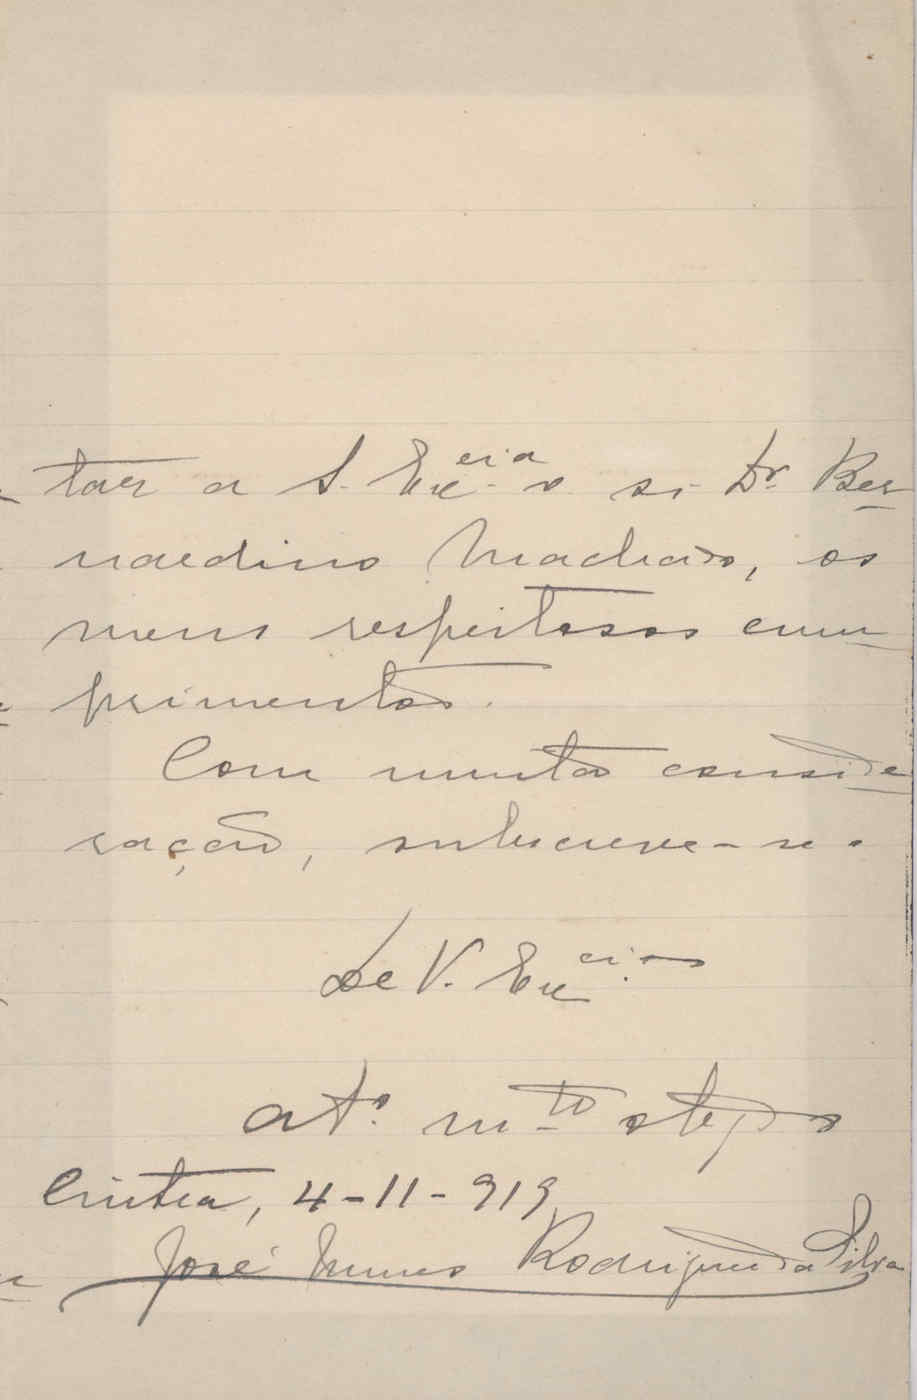 tar a S. Ex.cia o sr. Dr. Ber-
nardino Machado, os
meus respeitosos cum-
primentos.
Com muita conside-
ração, subscreve-se.
de V. Ex.cia
at.º m.to obgdo
Cintra, 4-11-919
José Nunes Rodrigues da Silva